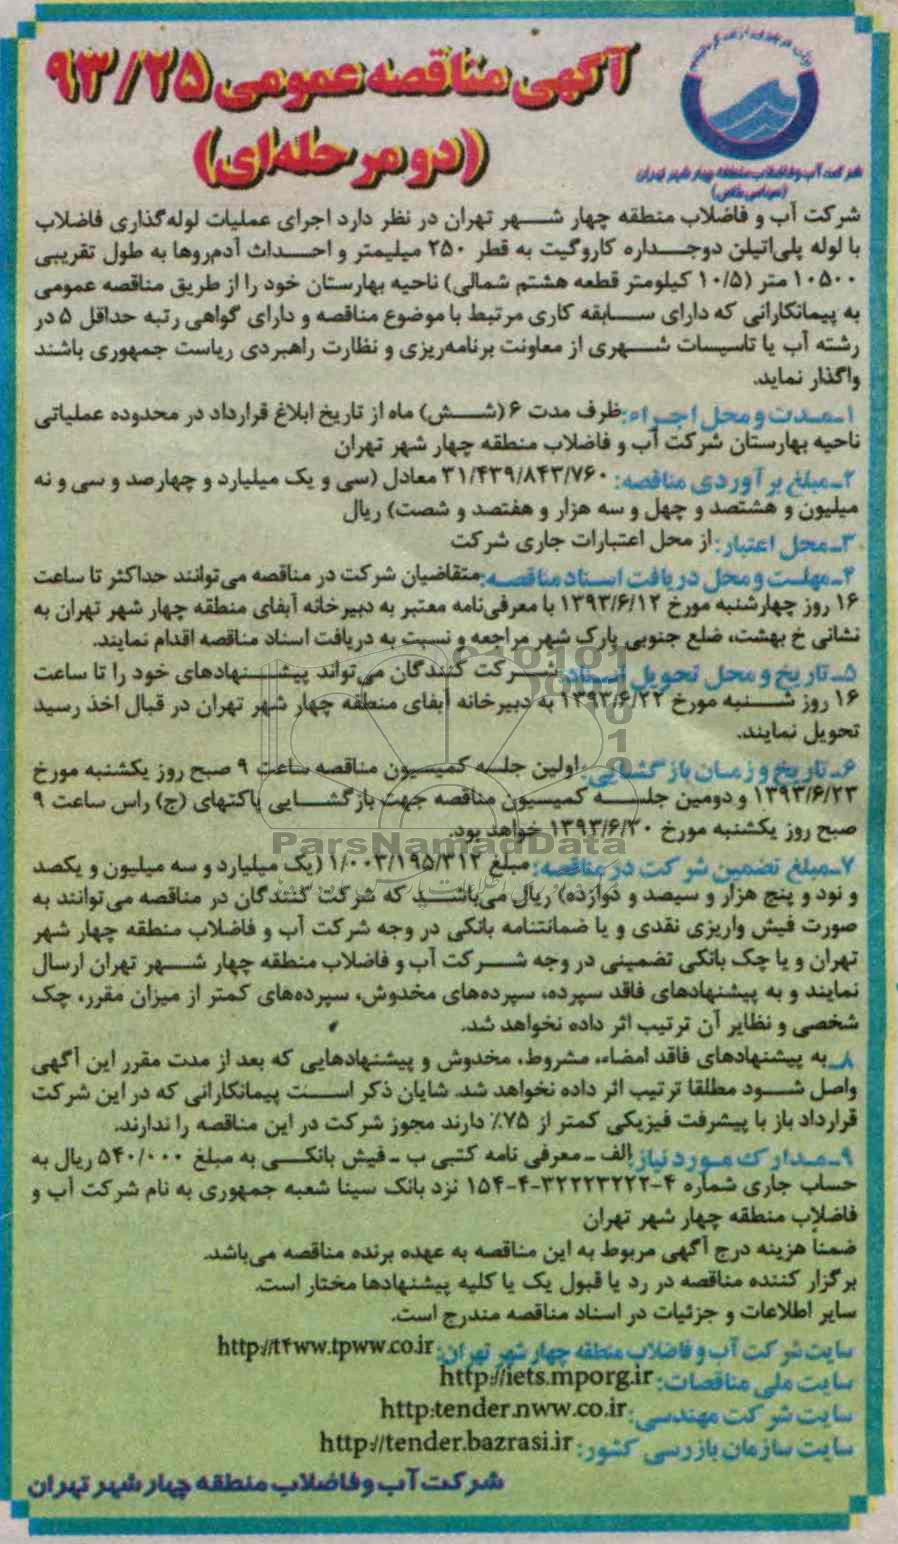 آگهی مناقصه عمومی ۹۳/۲۵
(دو مرحله‌ای)
شرکت آب و فاضلاب منطقه چهار شهر تهران
(سهامی خاص)
شرکت آب و فاضلاب منطقه چهار شهر تهران در نظر دارد اجرای عملیات لوله‌گذاری فاضلاب
با لوله پلی‌اتیلن دوجداره کاروگیت به قطر ۲۵۰ میلیمتر و احداث آدم‌روها به طول تقریبی
۱۰۵۰۰ متر (۱۰/۵ کیلومتر قطعه هشتم شمالی) ناحیه بهارستان خود را از طریق مناقصه عمومی
به پیمانکارانی که دارای سابقه کاری مرتبط با موضوع مناقصه و دارای گواهی رتبه حداقل ۵ در
رشته آب یا تاسیسات شهری از معاونت برنامه‌ریزی و نظارت راهبردی ریاست جمهوری باشند
واگذار نماید.
۱ـ مدت و محل اجراء: ظرف مدت ۶ (شش) ماه از تاریخ ابلاغ قرارداد در محدوده عملیاتی
ناحیه بهارستان شرکت آب و فاضلاب منطقه چهار شهر تهران
۲ـ مبلغ برآوردی مناقصه: ۳۱/۴۳۹/۸۴۳/۷۶۰ معادل (سی و یک میلیارد و چهارصد و سی و نه
میلیون و هشتصد و چهل و سه هزار و هفتصد و شصت) ریال
۳ـ محل اعتبار: از محل اعتبارات جاری شرکت
۴ـ مهلت و محل دریافت اسناد مناقصه: متقاضیان شرکت در مناقصه می‌توانند حداکثر تا ساعت
۱۶ روز چهارشنبه مورخ ۱۳۹۳/۶/۱۲ با معرفی‌نامه معتبر به دبیرخانه آبفای منطقه چهار شهر تهران به
نشانی خ بهشت، ضلع جنوبی پارک شهر مراجعه و نسبت به دریافت اسناد مناقصه اقدام نمایند.
۵ـ تاریخ و محل تحویل اسناد: شرکت کنندگان می‌تواند پیشنهادهای خود را تا ساعت
۱۶ روز شنبه مورخ ۱۳۹۳/۶/۲۲ به دبیرخانه آبفای منطقه چهار شهر تهران در قبال اخذ رسید
تحویل نمایند.
۶ـ تاریخ و زمان بازگشایی: اولین جلسه کمیسیون مناقصه ساعت ۹ صبح روز یکشنبه مورخ
۱۳۹۳/۶/۲۳ و دومین جلسه کمیسیون مناقصه جهت بازگشایی پاکتهای (ج) راس ساعت ۹
صبح روز یکشنبه مورخ ۱۳۹۳/۶/۳۰ خواهد بود.
ParsNamadData
۷ـ مبلغ تضمین شرکت در مناقصه: مبلغ ۱/۰۰۳/۱۹۵/۳۱۲ (یک میلیارد و سه میلیون و یکصد
و نود و پنج هزار و سیصد و دوازده) ریال می‌باشد که شرکت کنندگان در مناقصه می‌توانند به
صورت فیش واریزی نقدی و یا ضمانتنامه بانکی در وجه شرکت آب و فاضلاب منطقه چهار شهر
تهران و یا چک بانکی تضمینی در وجه شرکت آب و فاضلاب منطقه چهار شهر تهران ارسال
نمایند و به پیشنهادهای فاقد سپرده، سپرده‌های مخدوش، سپرده‌های کمتر از میزان مقرر، چک
شخصی و نظایر آن ترتیب اثر داده نخواهد شد.
۸ـ به پیشنهادهای فاقد امضاء، مشروط، مخدوش و پیشنهادهایی که بعد از مدت مقرر این آگهی
واصل شود مطلقا ترتیب اثر داده نخواهد شد. شایان ذکر است پیمانکارانی که در این شرکت
قرارداد باز با پیشرفت فیزیکی کمتر از ۷۵٪ دارند مجوز شرکت در این مناقصه را ندارند.
۹ـ مدارک مورد نیاز: الف ـ معرفی نامه کتبی ب ـ فیش بانکی به مبلغ ۵۴۰/۰۰۰ ریال به
حساب جاری شماره ۴-۳۲۲۲۳۲۲۲-۴-۱۵۴ نزد بانک سینا شعبه جمهوری به نام شرکت آب و
فاضلاب منطقه چهار شهر تهران
ضمناً هزینه درج آگهی مربوط به این مناقصه به عهده برنده مناقصه می‌باشد.
برگزار کننده مناقصه در رد یا قبول یک یا کلیه پیشنهادها مختار است.
سایر اطلاعات و جزئیات در اسناد مناقصه مندرج است.
سایت شرکت آب و فاضلاب منطقه چهار شهر تهران: http://t۴ww.tpww.co.ir
سایت ملی مناقصات: http://iets.mporg.ir
سایت شرکت مهندسی: http:tender.nww.co.ir
سایت سازمان بازرسی کشور: http://tender.bazrasi.ir
شرکت آب و فاضلاب منطقه چهار شهر تهران